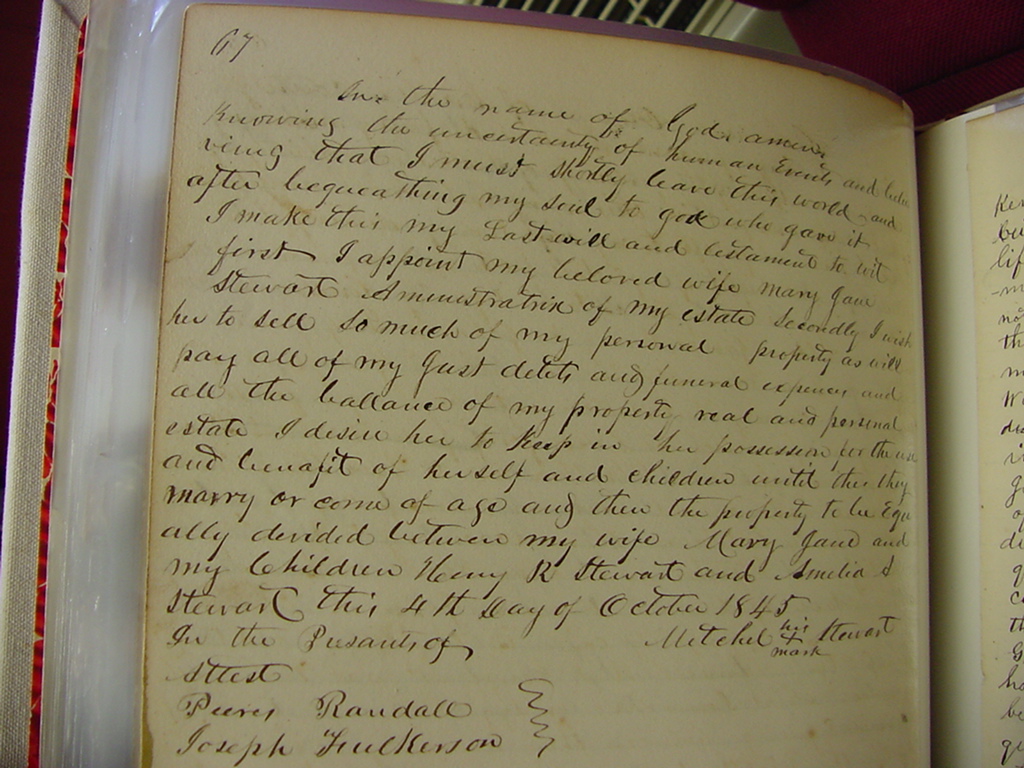 67
In the name of God amen
Knowing the uncertainty of human Events and belie
ving that I must shortly leave this world and
after bequeathing my soul to god who gave it
I make this my Last will and testament to wit
first I appoint my beloved wife Mary Jane
Stewart Aministratrix of my estate Secondly I wish
her to sell so much of my personal property as will
pay all of my Just debts and funeral expences and
all the ballance of my property real and personal
estate I desire her to Keep in her possession for the use
and benafit of herself and children until the they
marry or come of age and then the property to be Equ
ally devided between my wife Mary Jane and
my Children Henry R Stewart and Amelia S
Stewart this 4th Day of October 1845
In the Presants of
Mitchel his + mark Stewart
Attest
Peeres Randall
Joseph Fulkerson